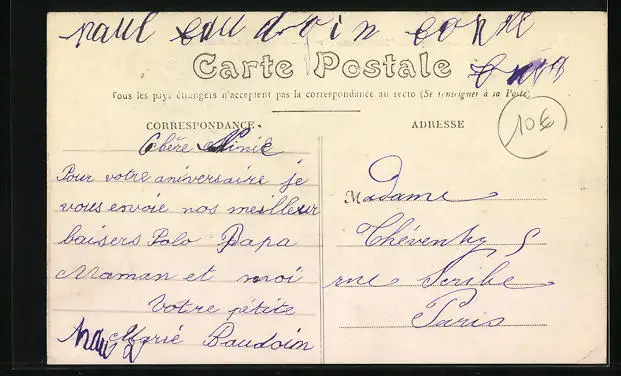 paul baudroin
Carte Postale
Tous les pays étrangers n'acceptent pas la correspondance au recto (Se renseigner à la Poste)
10€
CORRESPONDANCE
ADRESSE
Chère Ninie
Pour votre aniversaire je
vous envoie nos meilleur
baisers Polo Papa
Maman et moi
Votre petite
Marie Baudoin
Madame
Thévenky 5
rue Scribe
Paris